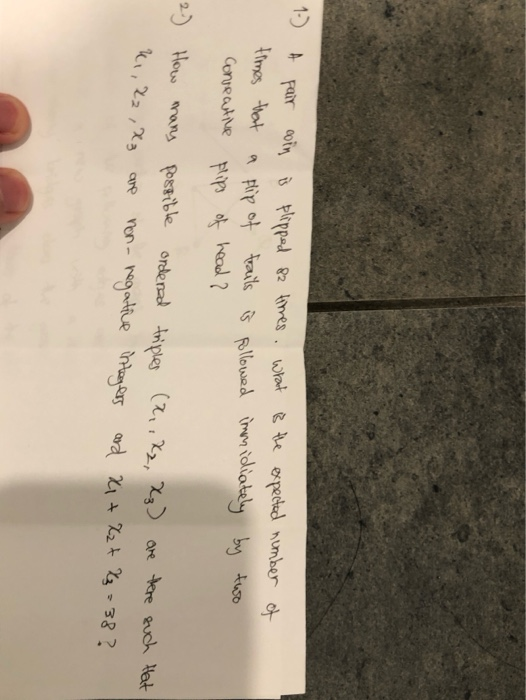 1-) A fair coin is flipped 82 times. What is the expected number of
times that a flip of tails is followed immidiately by two
consecutive flips of head?
2-) How many possible ordered triples (x1, x2, x3) are there such that
x1, x2, x3 are non-negative integers and x1 + x2 + x3 = 38?